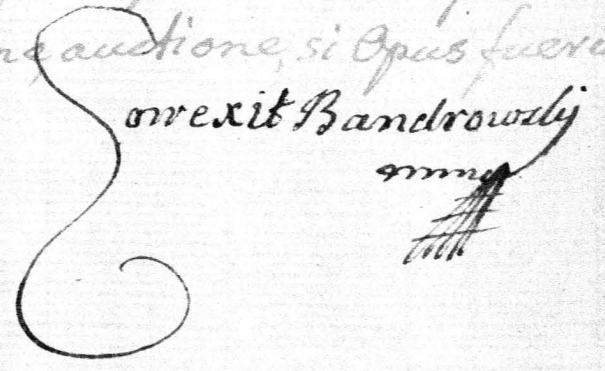 auctione, si Opus fuerit
Correxit Bandrowskij
mmp